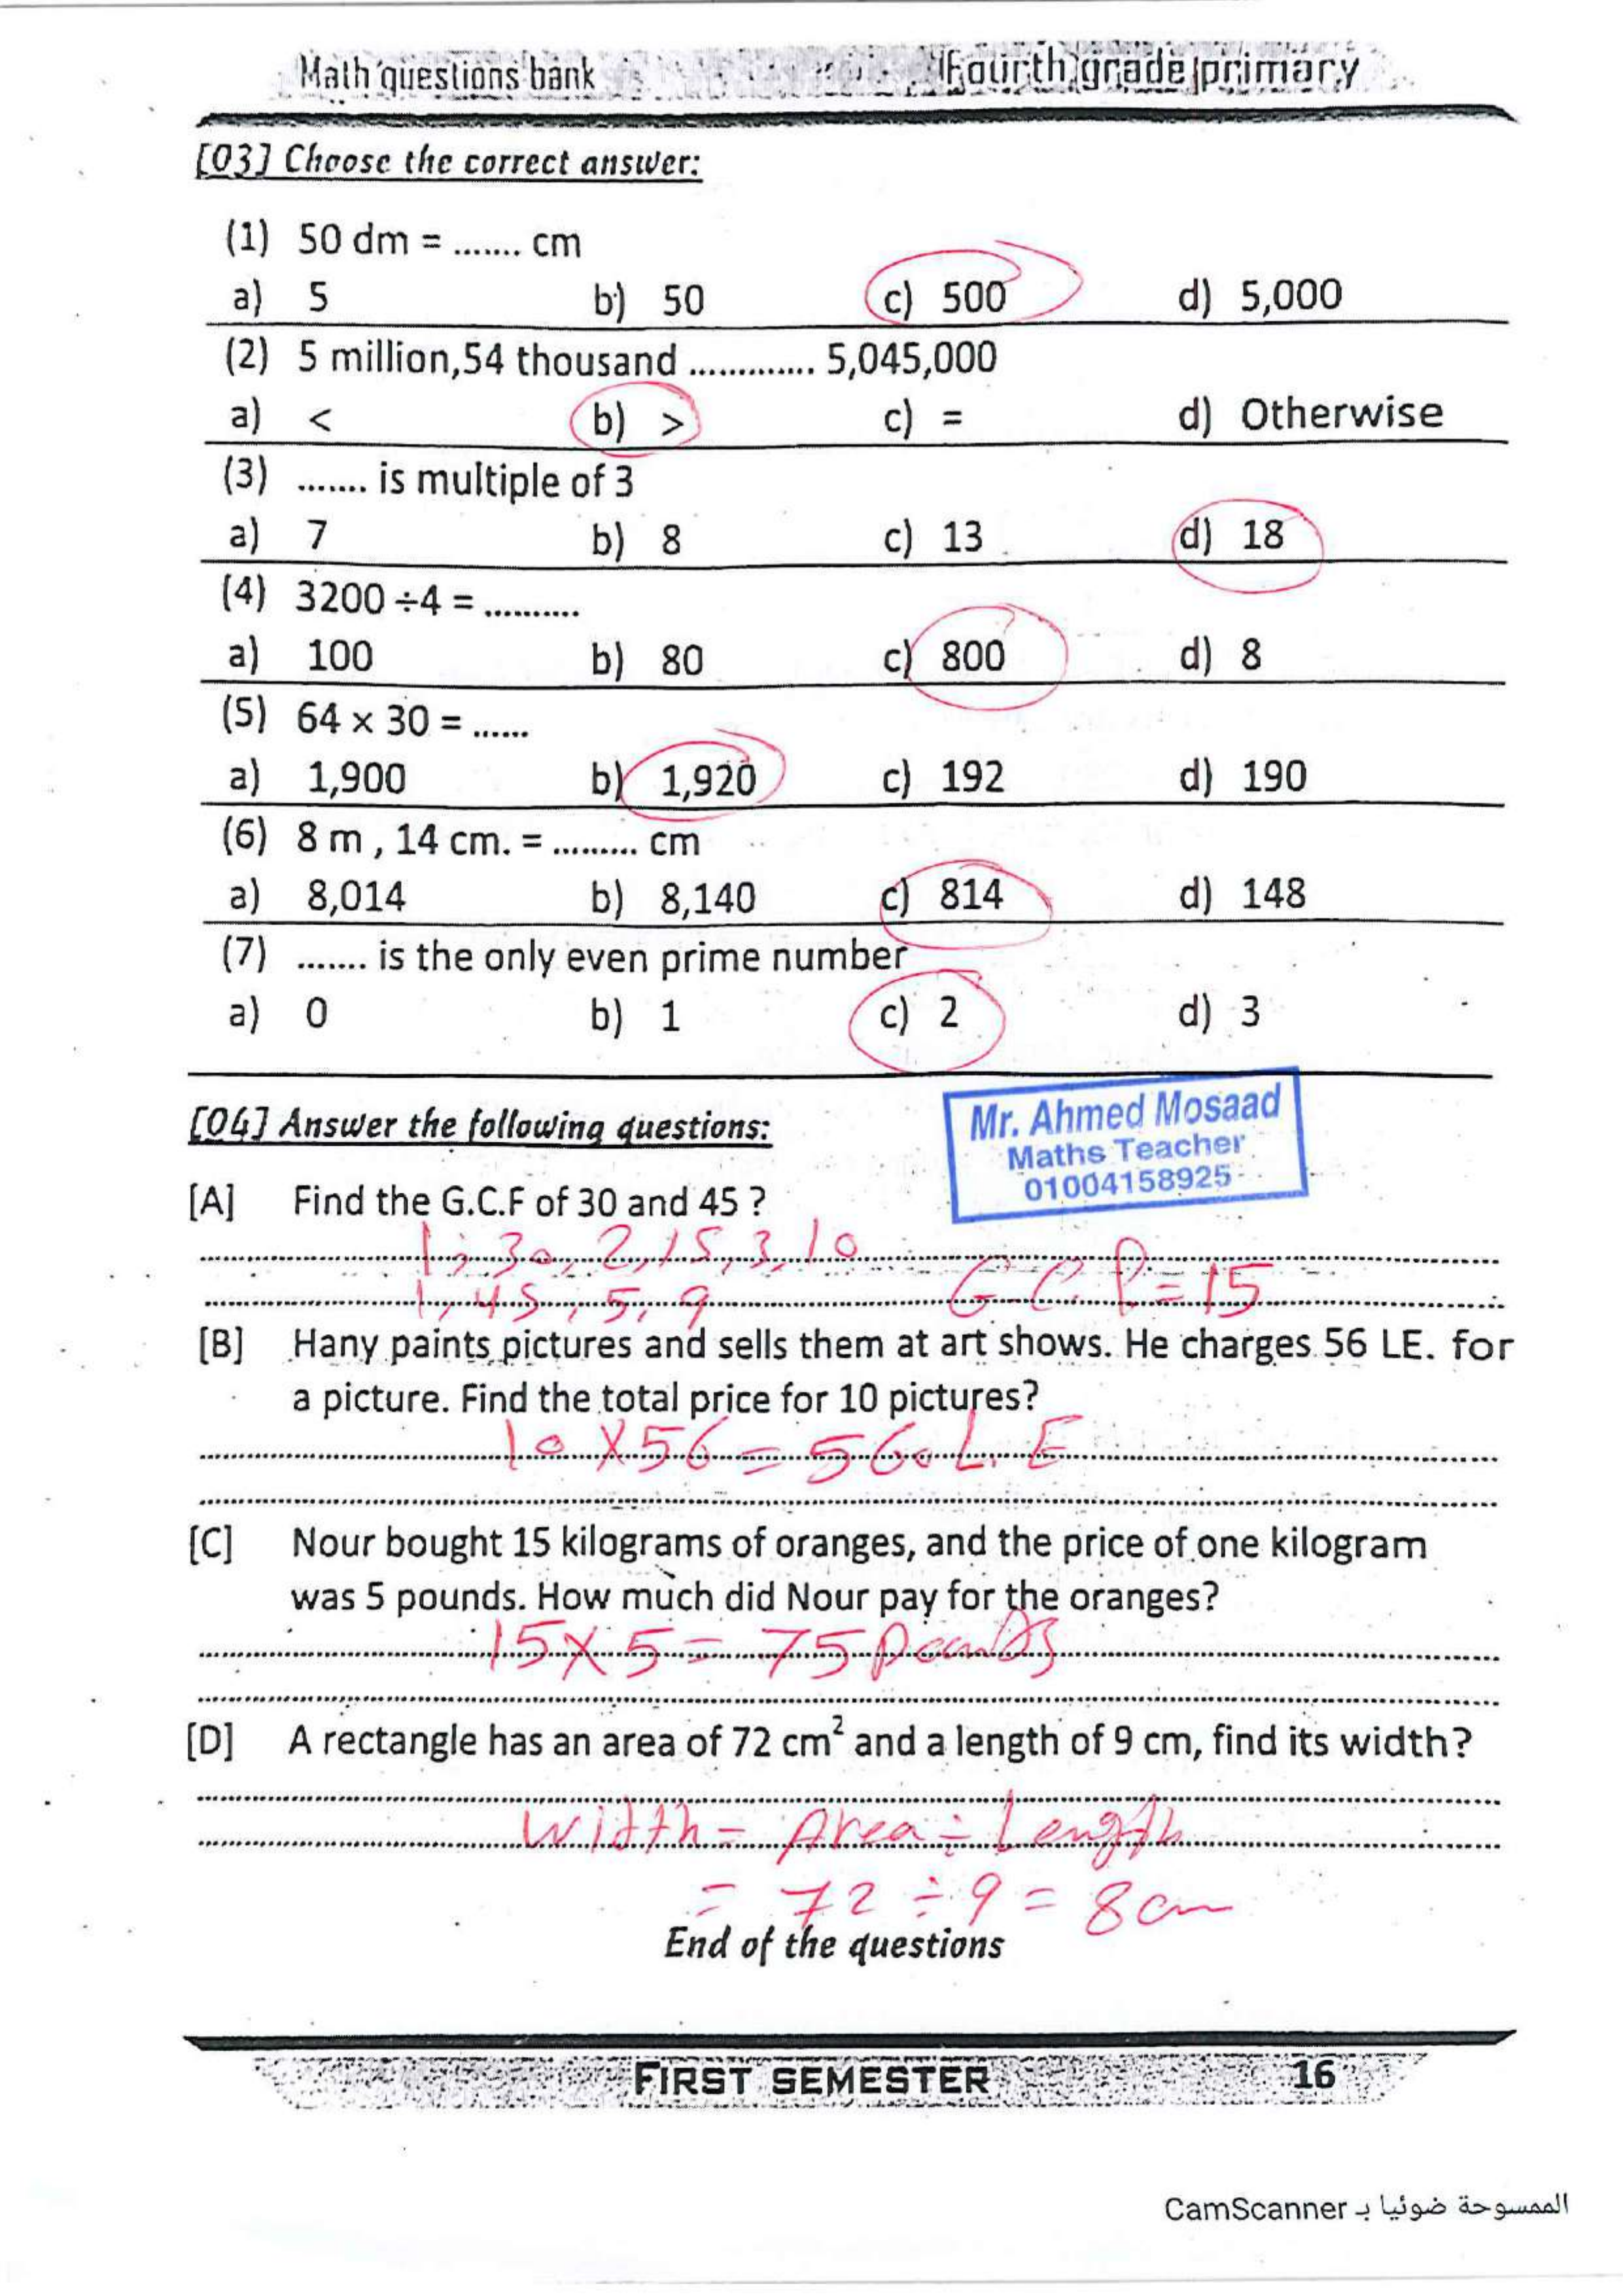 Math questions bank Fourth grade primary
[03] Choose the correct answer:
(1) 50 dm = ....... cm
a) 5 b) 50 c) 500 d) 5,000
(2) 5 million,54 thousand ............. 5,045,000
a) < b) > c) = d) Otherwise
(3) ....... is multiple of 3
a) 7 b) 8 c) 13 d) 18
(4) 3200 ÷4 = ..........
a) 100 b) 80 c) 800 d) 8
(5) 64 x 30 = ......
a) 1,900 b) 1,920 c) 192 d) 190
(6) 8 m , 14 cm. = ......... cm
a) 8,014 b) 8,140 c) 814 d) 148
(7) ....... is the only even prime number
a) 0 b) 1 c) 2 d) 3
Mr. Ahmed Mosaad
Maths Teacher
01004158925
[04] Answer the following questions:
[A] Find the G.C.F of 30 and 45 ?
1, 30, 2, 15, 3, 10
1, 45, 5, 9 G.C.F = 15
[B] Hany paints pictures and sells them at art shows. He charges 56 LE. for
a picture. Find the total price for 10 pictures?
10 X 56 = 560 L.E
[C] Nour bought 15 kilograms of oranges, and the price of one kilogram
was 5 pounds. How much did Nour pay for the oranges?
15 X 5 = 75 Pounds
[D] A rectangle has an area of 72 cm² and a length of 9 cm, find its width?
Width = Area ÷ Length
= 72 ÷ 9 = 8 cm
End of the questions
FIRST SEMESTER 16
الممسوحة ضوئيا بـ CamScanner